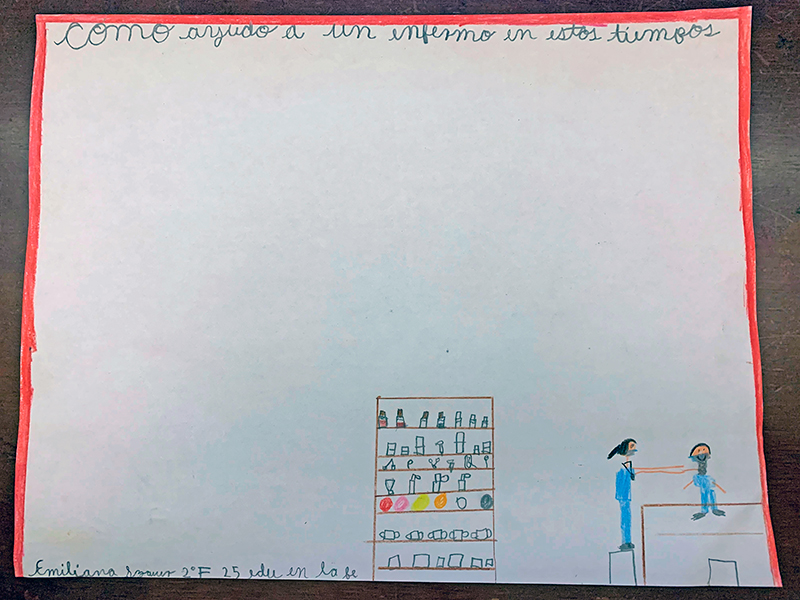 como ayudo a un enfermo en estos tiempos
Emiliana 2°F 25 edu en la fe